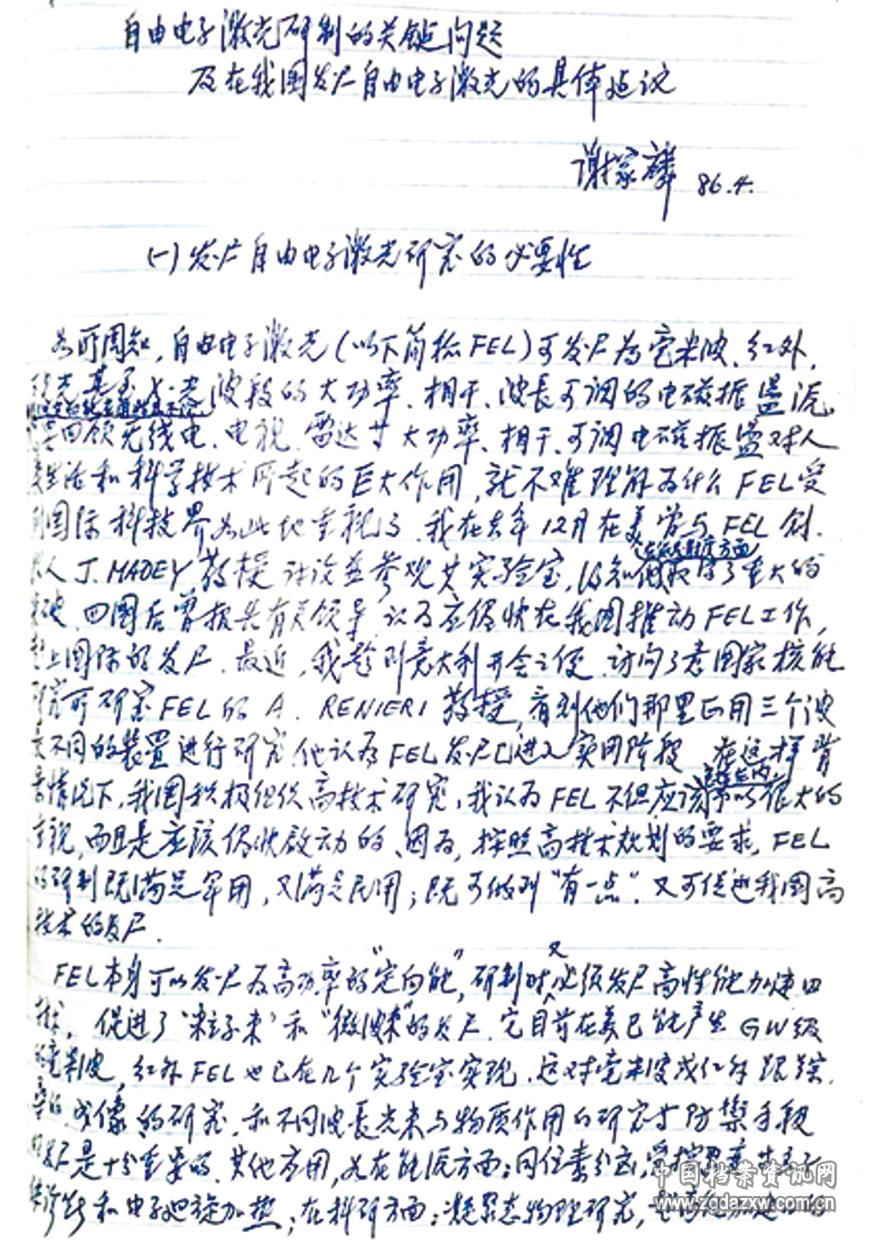 自由电子激光研制的关键问题
及在我国发展自由电子激光的具体建议
谢家麟 86.4.
(一)发展自由电子激光研究的必要性
众所周知，自由电子激光(以下简称FEL)可发展为毫米波、红外、
光甚至X-光波段的大功率、相干、波长可调的电磁振盪源。
回顾无线电、电视、雷达等大功率、相干、可调电磁振盪对人
类生活和科学技术所起的巨大作用，就不难理解为什么FEL受
到国际科技界如此地重视了。我在去年12月在美曾与FEL创
人J.MADEY教授讨论并参观其实验室，得知 取得了重大的
在 方面
突破。回国后曾报告有关领导，认为应俱快在我国推动FEL工作，
赶上国际的发展。最近，我趁到意大利开会之便，访问了意国家核能
研究所研究FEL的A. RENIERI教授，看到他们那里正用三个波
长不同的装置进行研究，他认为FEL发展已进入实用阶段。在这样背
景情况下，我国积极组织高技术研究，我认为FEL不但应该予以很大的
重视，而且是应该俱快启动的。因为，按照高技术规划的要求，FEL
的研制既满足军用，又满足民用；既可做到“有一点”，又可促进我国高
技术的发展。
FEL本身可以发展为高功率的“定向能”，研制时又必须发展高性能加速四
技术，促进了“粒子束”和“微波束”的发展。它目前在美已能产生GW级
的毫米波，红外FEL也已在几个实验室实现。这对毫米波或红外跟踪、
成像的研究，和不同波长光束与物质作用的研究等防禦手段
的发展是十分重要的。其他应用，如在能源方面：同位素分离，
诊断和电子迴旋加热；在科研方面：凝聚态物理研究，
中国档案资讯网
www.zgdazxw.com.cn